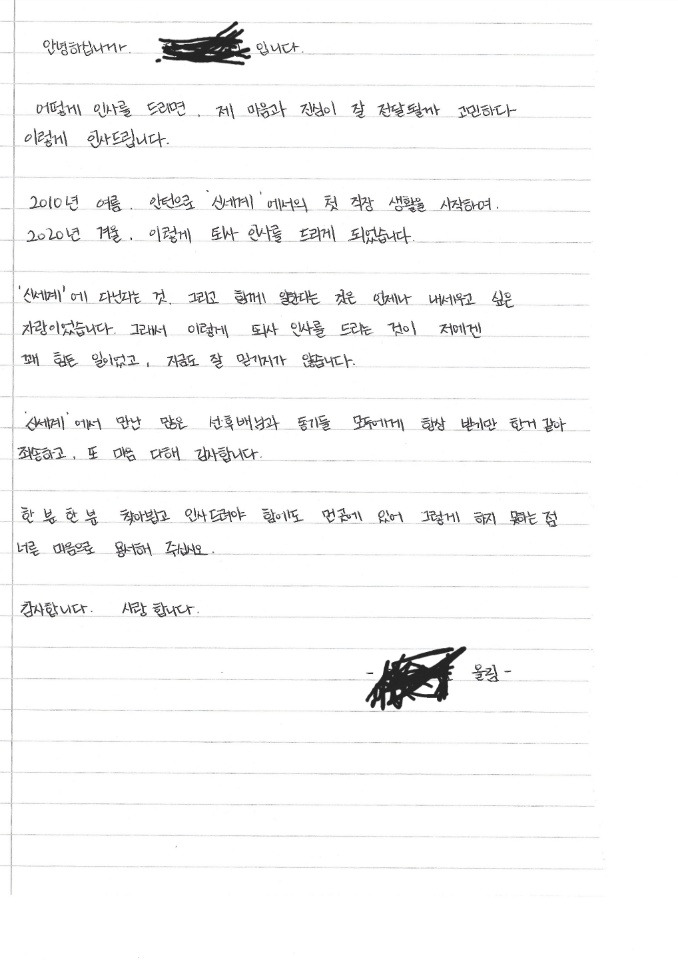 안녕하십니까. 입니다.
어떻게 인사를 드리면, 제 마음과 진심이 잘 전달될까 고민하다
이렇게 인사드립니다.
2010년 여름, 인턴으로 '신세계'에서의 첫 직장 생활을 시작하여,
2020년 겨울, 이렇게 퇴사 인사를 드리게 되었습니다.
'신세계'에 다닌다는 것, 그리고 함께 일한다는 것은 언제나 내세우고 싶은
자랑이었습니다. 그래서 이렇게 퇴사 인사를 드리는 것이 저에겐
꽤 힘든 일이었고, 지금도 잘 믿기지가 않습니다.
'신세계'에서 만난 많은 선후배님과 동기들 모두에게 항상 받기만 한거 같아
죄송하고, 또 마음 다해 감사합니다.
한 분 한 분 찾아뵙고 인사드려야 함에도 먼곳에 있어 그렇게 하지 못하는 점
너른 마음으로 용서해 주십시오.
감사합니다. 사랑합니다.
- 올림 -